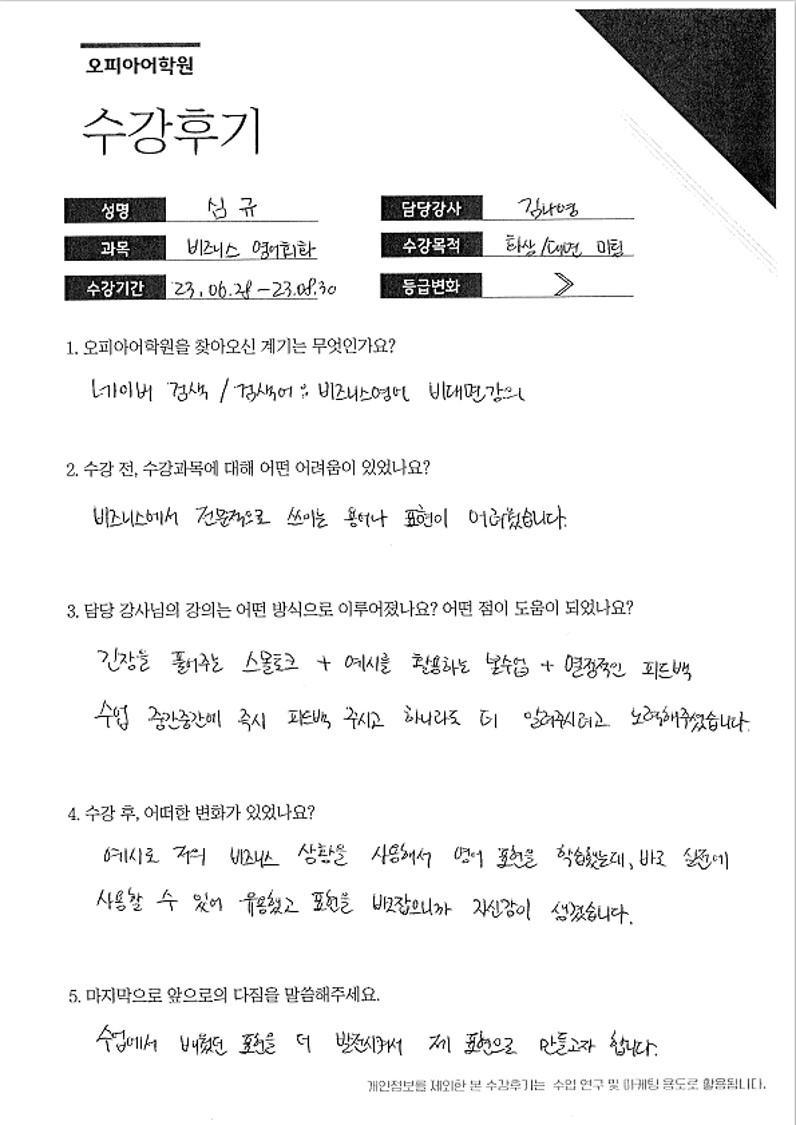 오피아어학원
수강후기
성명 심규 담당강사 김나영
과목 비즈니스 영어회화 수강목적 화상/대면 미팅
수강기간 23.06.28-23.08.30 등급변화
1. 오피아어학원을 찾아오신 계기는 무엇인가요?
네이버 검색 / 검색어: 비즈니스영어 비대면강의
2. 수강 전, 수강과목에 대해 어떤 어려움이 있었나요?
비즈니스에서 전문적으로 쓰이는 용어나 표현이 어려웠습니다.
3. 담당 강사님의 강의는 어떤 방식으로 이루어졌나요? 어떤 점이 도움이 되었나요?
긴장을 풀어주는 스몰토크 + 예시를 활용하는 본수업 + 열정적인 피드백
수업 중간중간에 즉시 피드백 주시고 하나라도 더 알려주시려고 노력해주셨습니다.
4. 수강 후, 어떠한 변화가 있었나요?
예시로 저의 비즈니스 상황을 사용해서 영어 표현을 학습했는데, 바로 실전에
사용할 수 있어 유용했고 표현을 바로잡으니까 자신감이 생겼습니다.
5. 마지막으로 앞으로의 다짐을 말씀해주세요.
수업에서 배웠던 표현을 더 발전시켜서 제 표현으로 만들고자 합니다.
개인정보를 제외한 본 수강후기는 수업 연구 및 마케팅 용도로 활용됩니다.